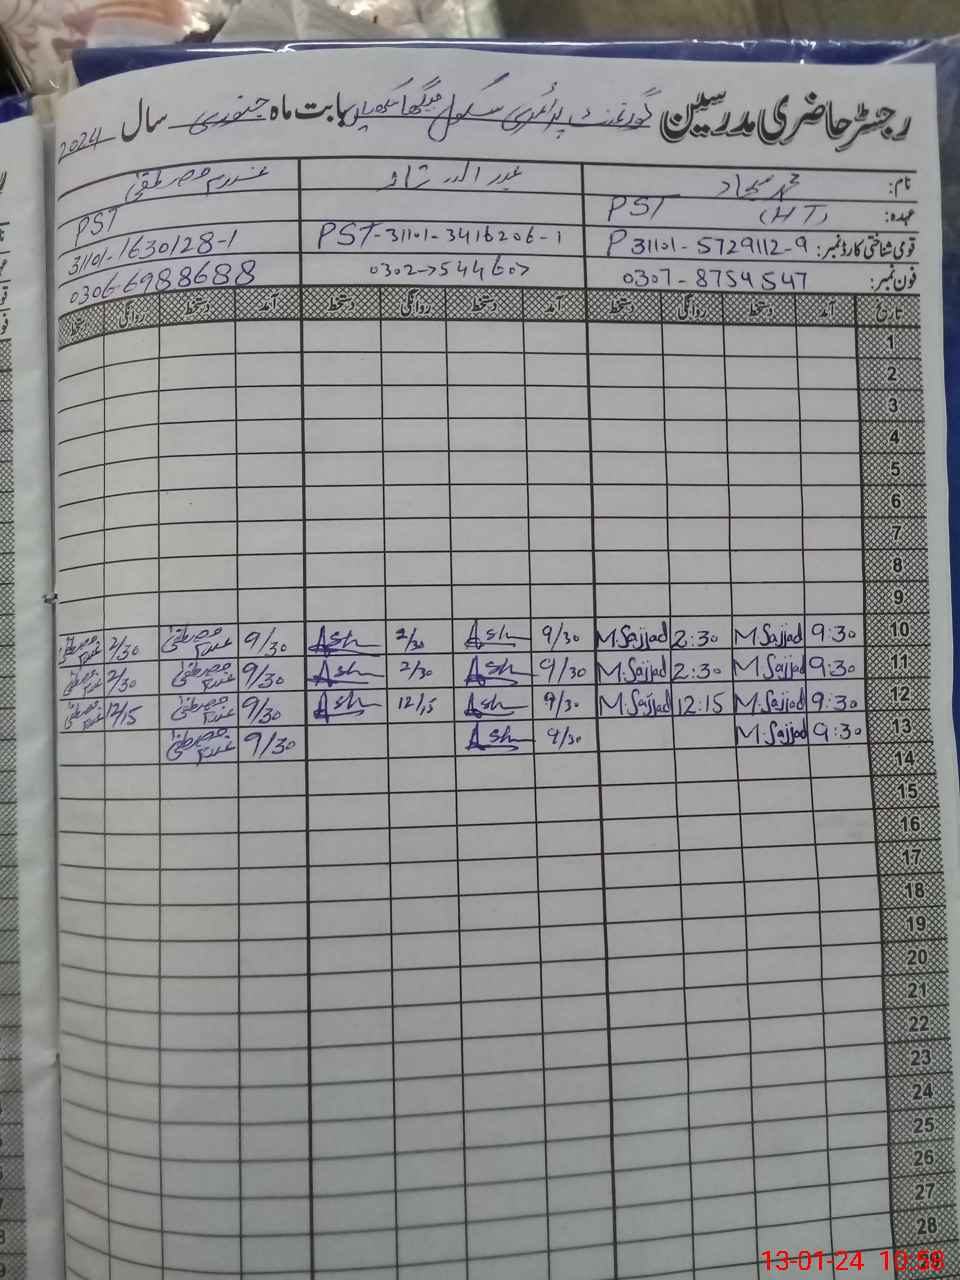 رجسٹر حاضری مدرسین گورنمنٹ پرائمری سکول بابت ماہ جنوری سال 2024
نام: محمد سجاد عبد الستار غلام مصطفیٰ
عہدہ: PST (HT) PST
قومی شناختی کارڈ نمبر: P 31101-5729112-9 PST-31101-3416206-1 31101-1630128-1
فون نمبر: 0307-8754547 0302-7544607 0306-6988688
تاریخ آمد دستخط روانگی دستخط آمد دستخط روانگی دستخط آمد دستخط روانگی دستخط
1
2
3
4
5
6
7
8
9
10 9:30 M.Sajjad 2:30 M.Sajjad 9/30 Ash 2/30 Ash 9/30 غلام مصطفیٰ 2/30 غلام مصطفیٰ
11 9:30 M.Sajjad 2:30 M.Sajjad 9/30 Ash 2/30 Ash 9/30 غلام مصطفیٰ 2/30 غلام مصطفیٰ
12 9:30 M.Sajjad 12:15 M.Sajjad 9/30 Ash 12/15 Ash 9/30 غلام مصطفیٰ 12/15 غلام مصطفیٰ
13 9:30 M.Sajjad 9/30 Ash 9/30 غلام مصطفیٰ
14
15
16
17
18
19
20
21
22
23
24
25
26
27
28
29
13-01-24 10:58